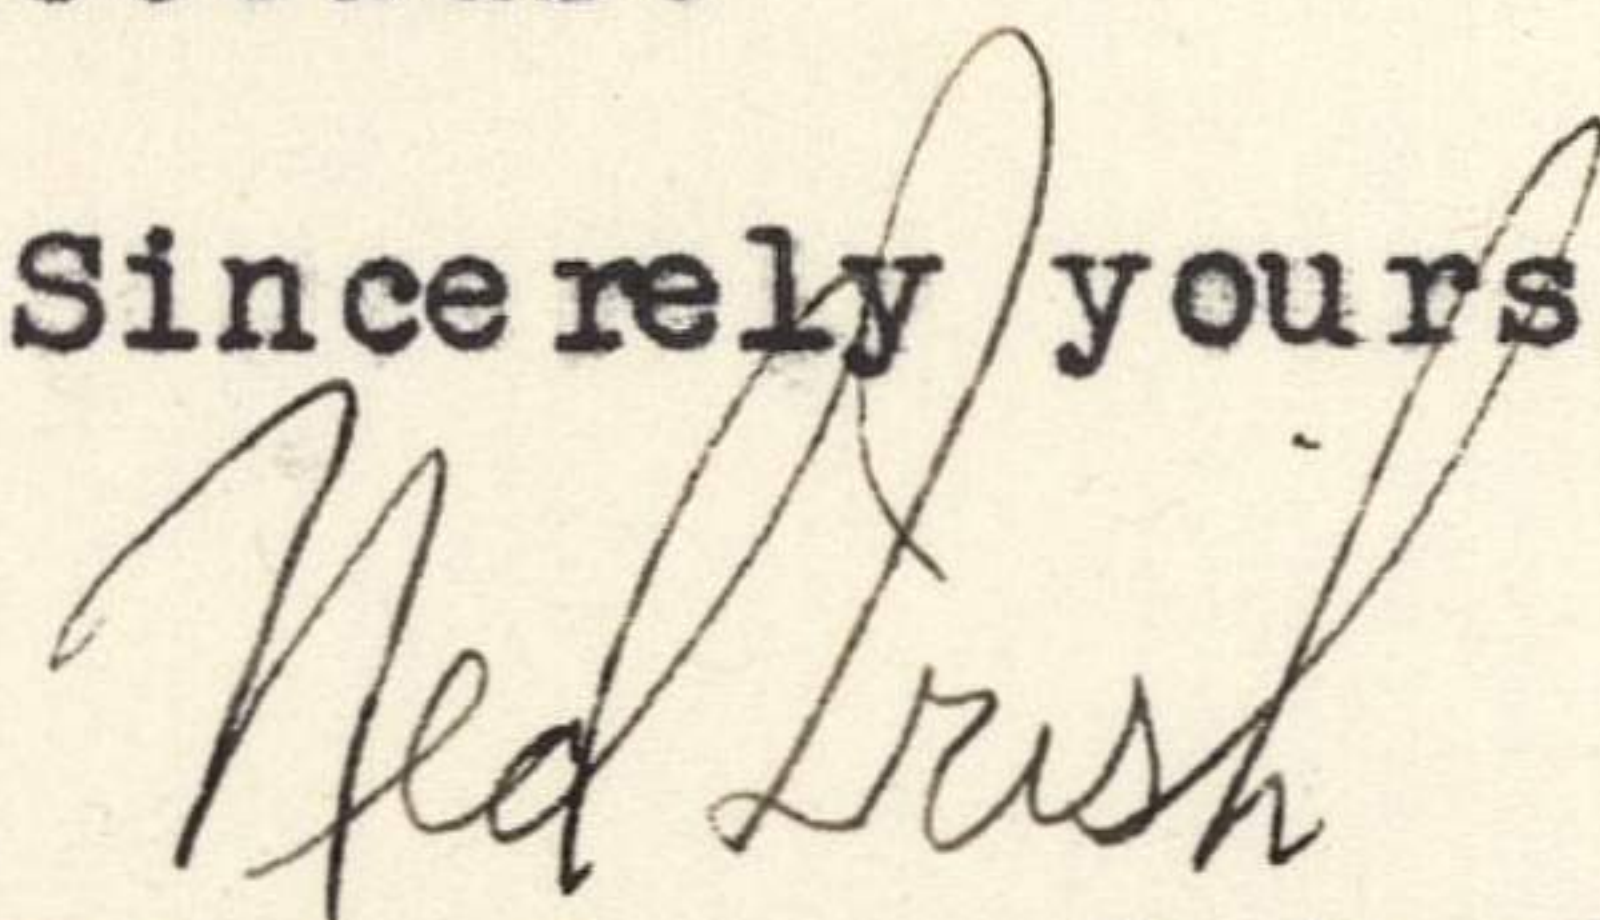 Sincerely yours
Ned Irish